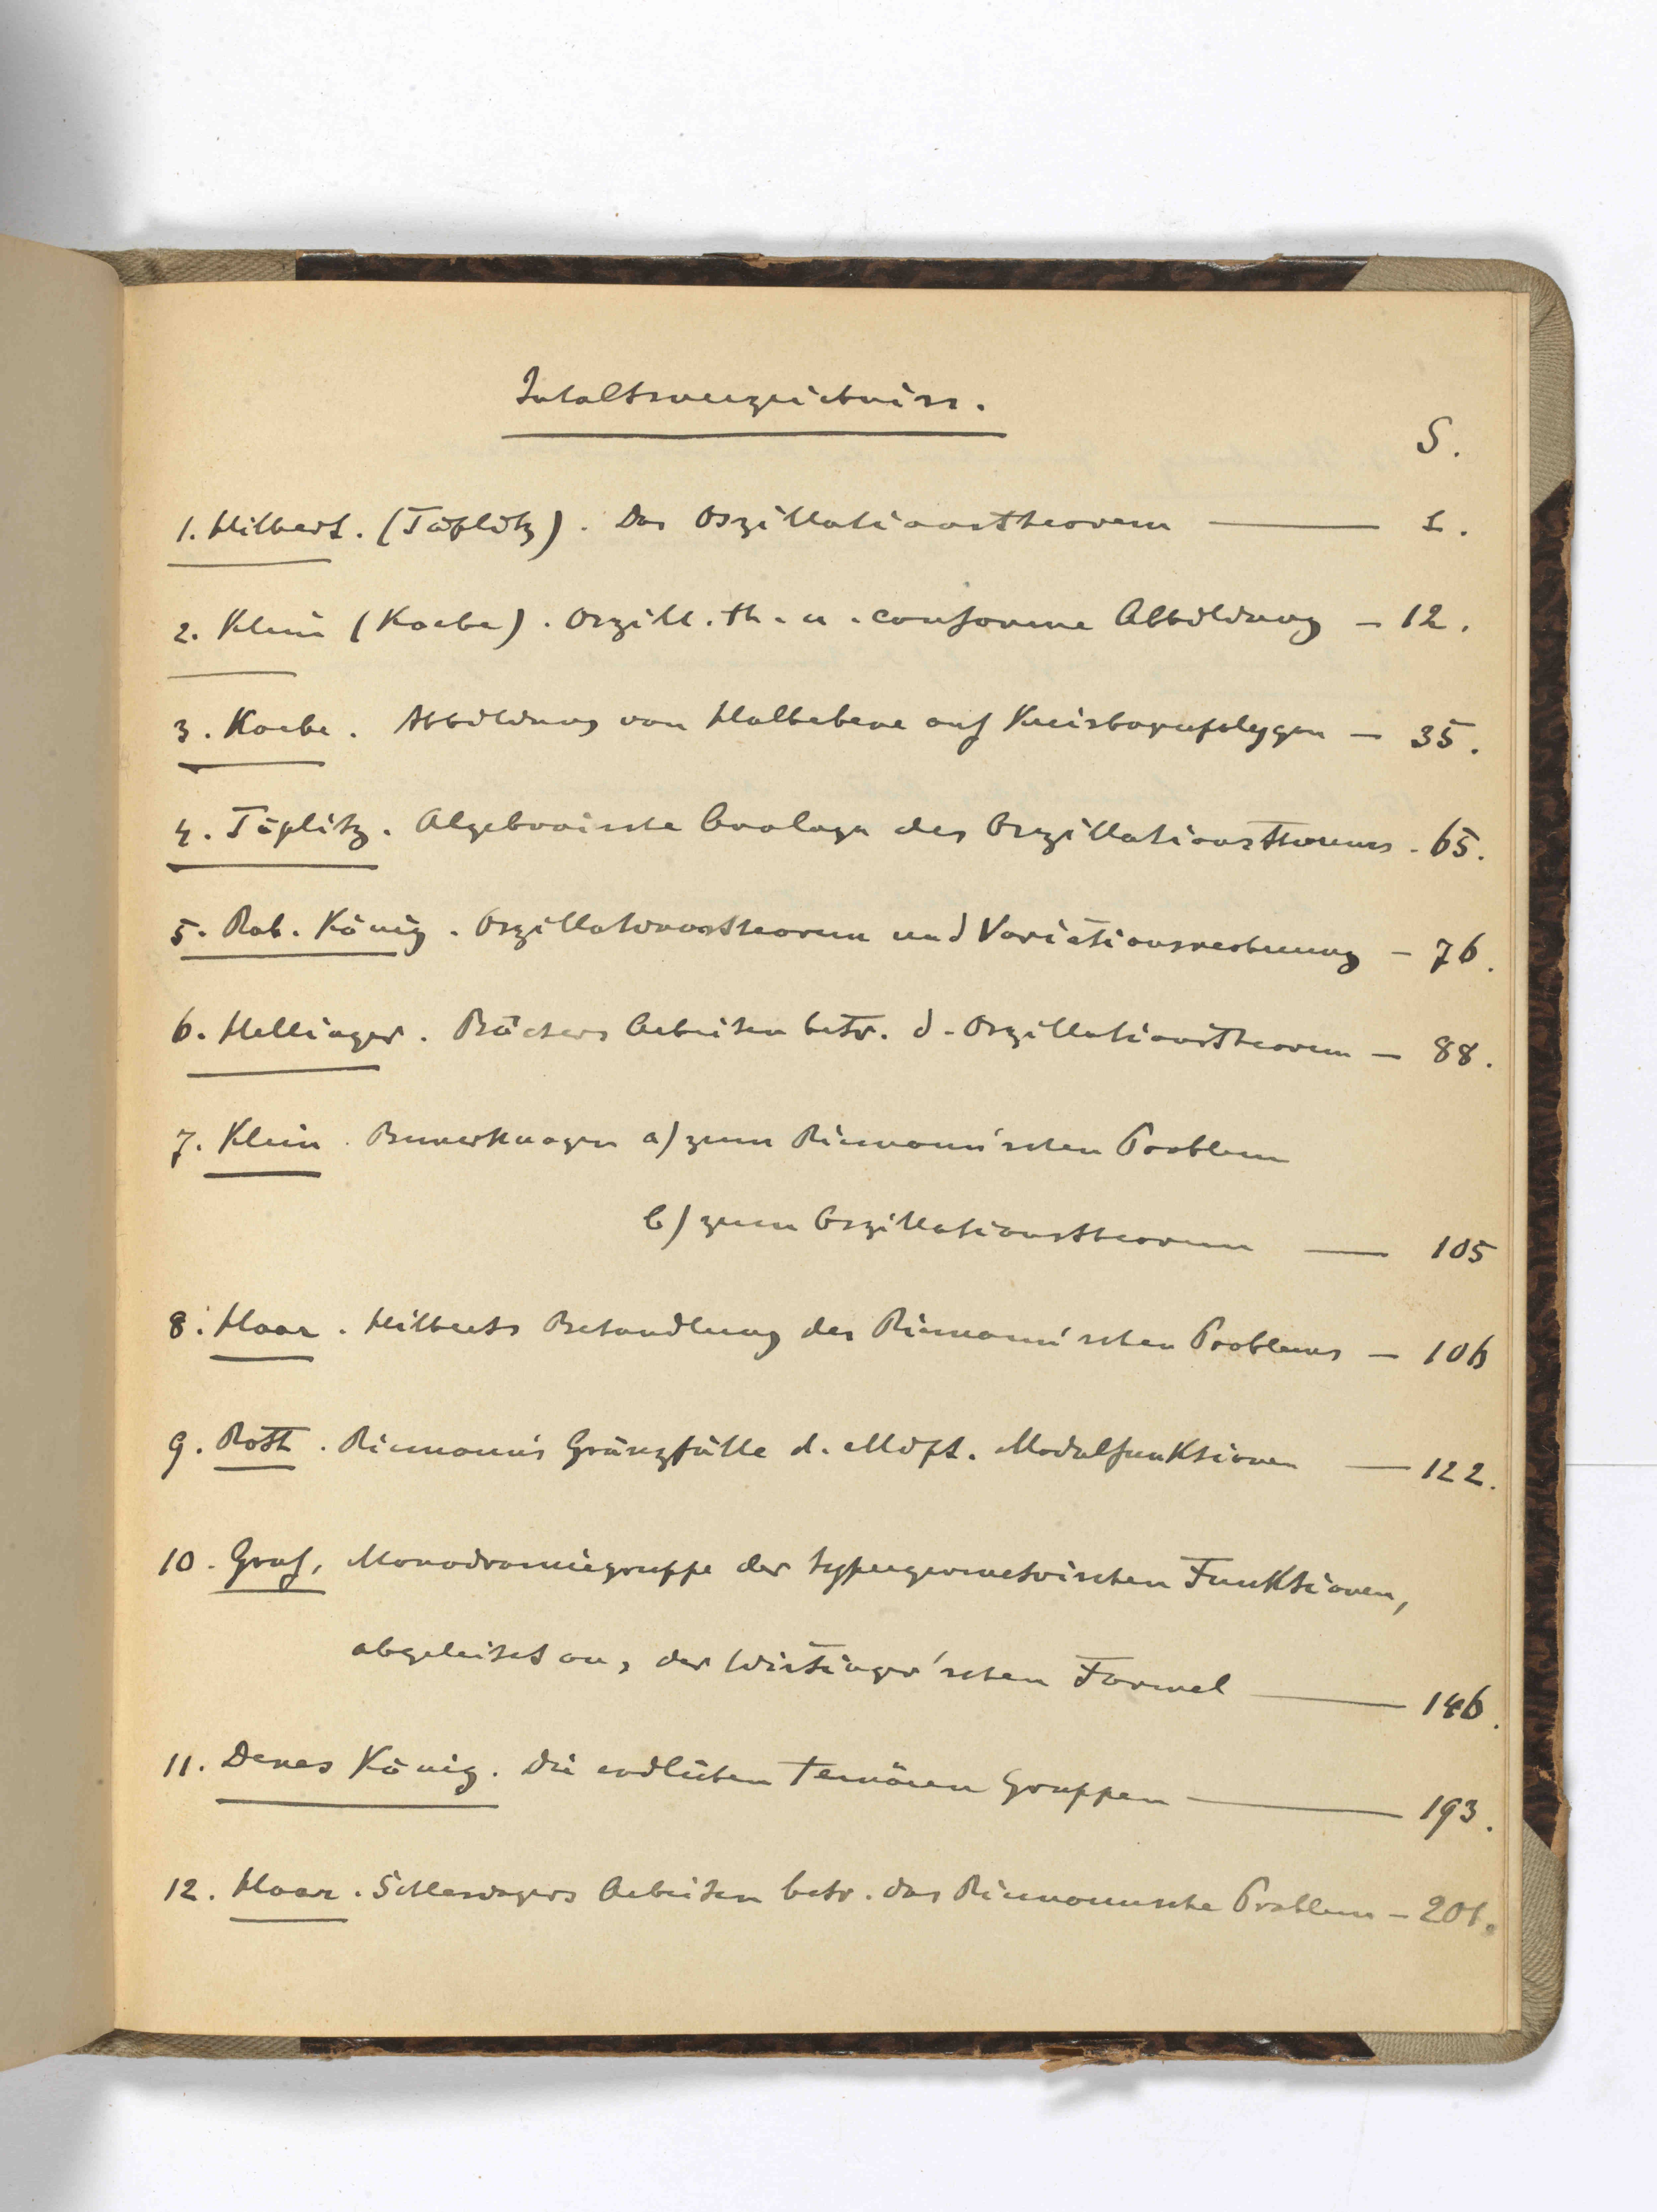 Inhaltsverzeichniss.
S.
1. Hilbert. (Töplitz). Das Oszillationstheorem — 1.
2. Klein (Koebe). Oszill. th. u. conforme Abbildung — 12.
3. Koebe. Abbildung von Halbebene auf Kreisbogenpolygon — 35.
4. Töplitz. Algebraische Analoga des Oszillationstheorems. 65.
5. Rob. König. Oszillationstheorem und Variationsrechnung — 76.
6. Hellinger. Bôchers Arbeiten betr. d. Oszillationstheorem — 88.
7. Klein. Bemerkungen a) zum Riemann'schen Problem
b) zum Oszillationstheorem — 105
8. Haar. Hilberts Behandlung des Riemann'schen Problems — 106
9. Roth. Riemann's Gränzfälle d. ell. Modulfunktionen — 122.
10. Graf, Monodromiegruppe der hypergeometrischen Funktionen,
abgeleitet aus der Wirtinger'schen Formel — 146.
11. Denes König. Die endlichen ternären Gruppen — 193.
12. Haar. Schlesingers Arbeiten betr. das Riemannsche Problem — 201.